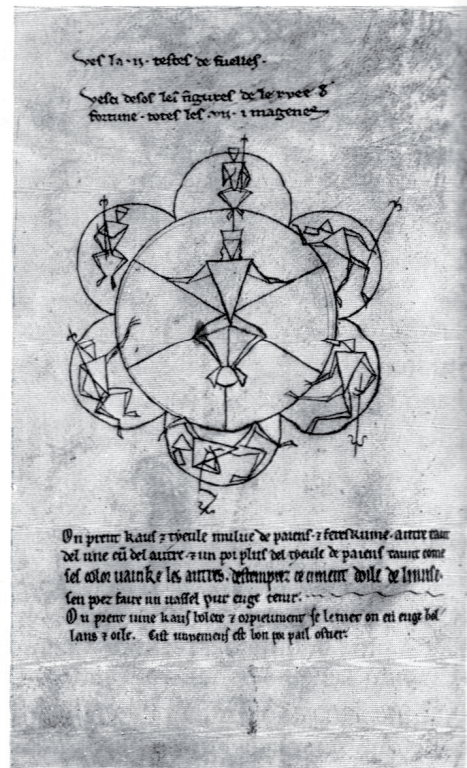 Ves la .ii. testes de fuelles.
Vesci desos les figures de le ruee d
fortune . totes les .vii. imagenes
On prent kaus z tyeule mulue de paiens . z feres kume . autre tant
del une cū del autre . z un poi plus del tyeule de paiens taunt come
ses color vainke les autres . destemprez ce ciment doile de linuse .
sen poez faire un vassel pur euge tenir .
On prent vive kaus bolete z orpieument se le met on en euge bol
lans z oile . Cist ungemens est bon por pail oster .